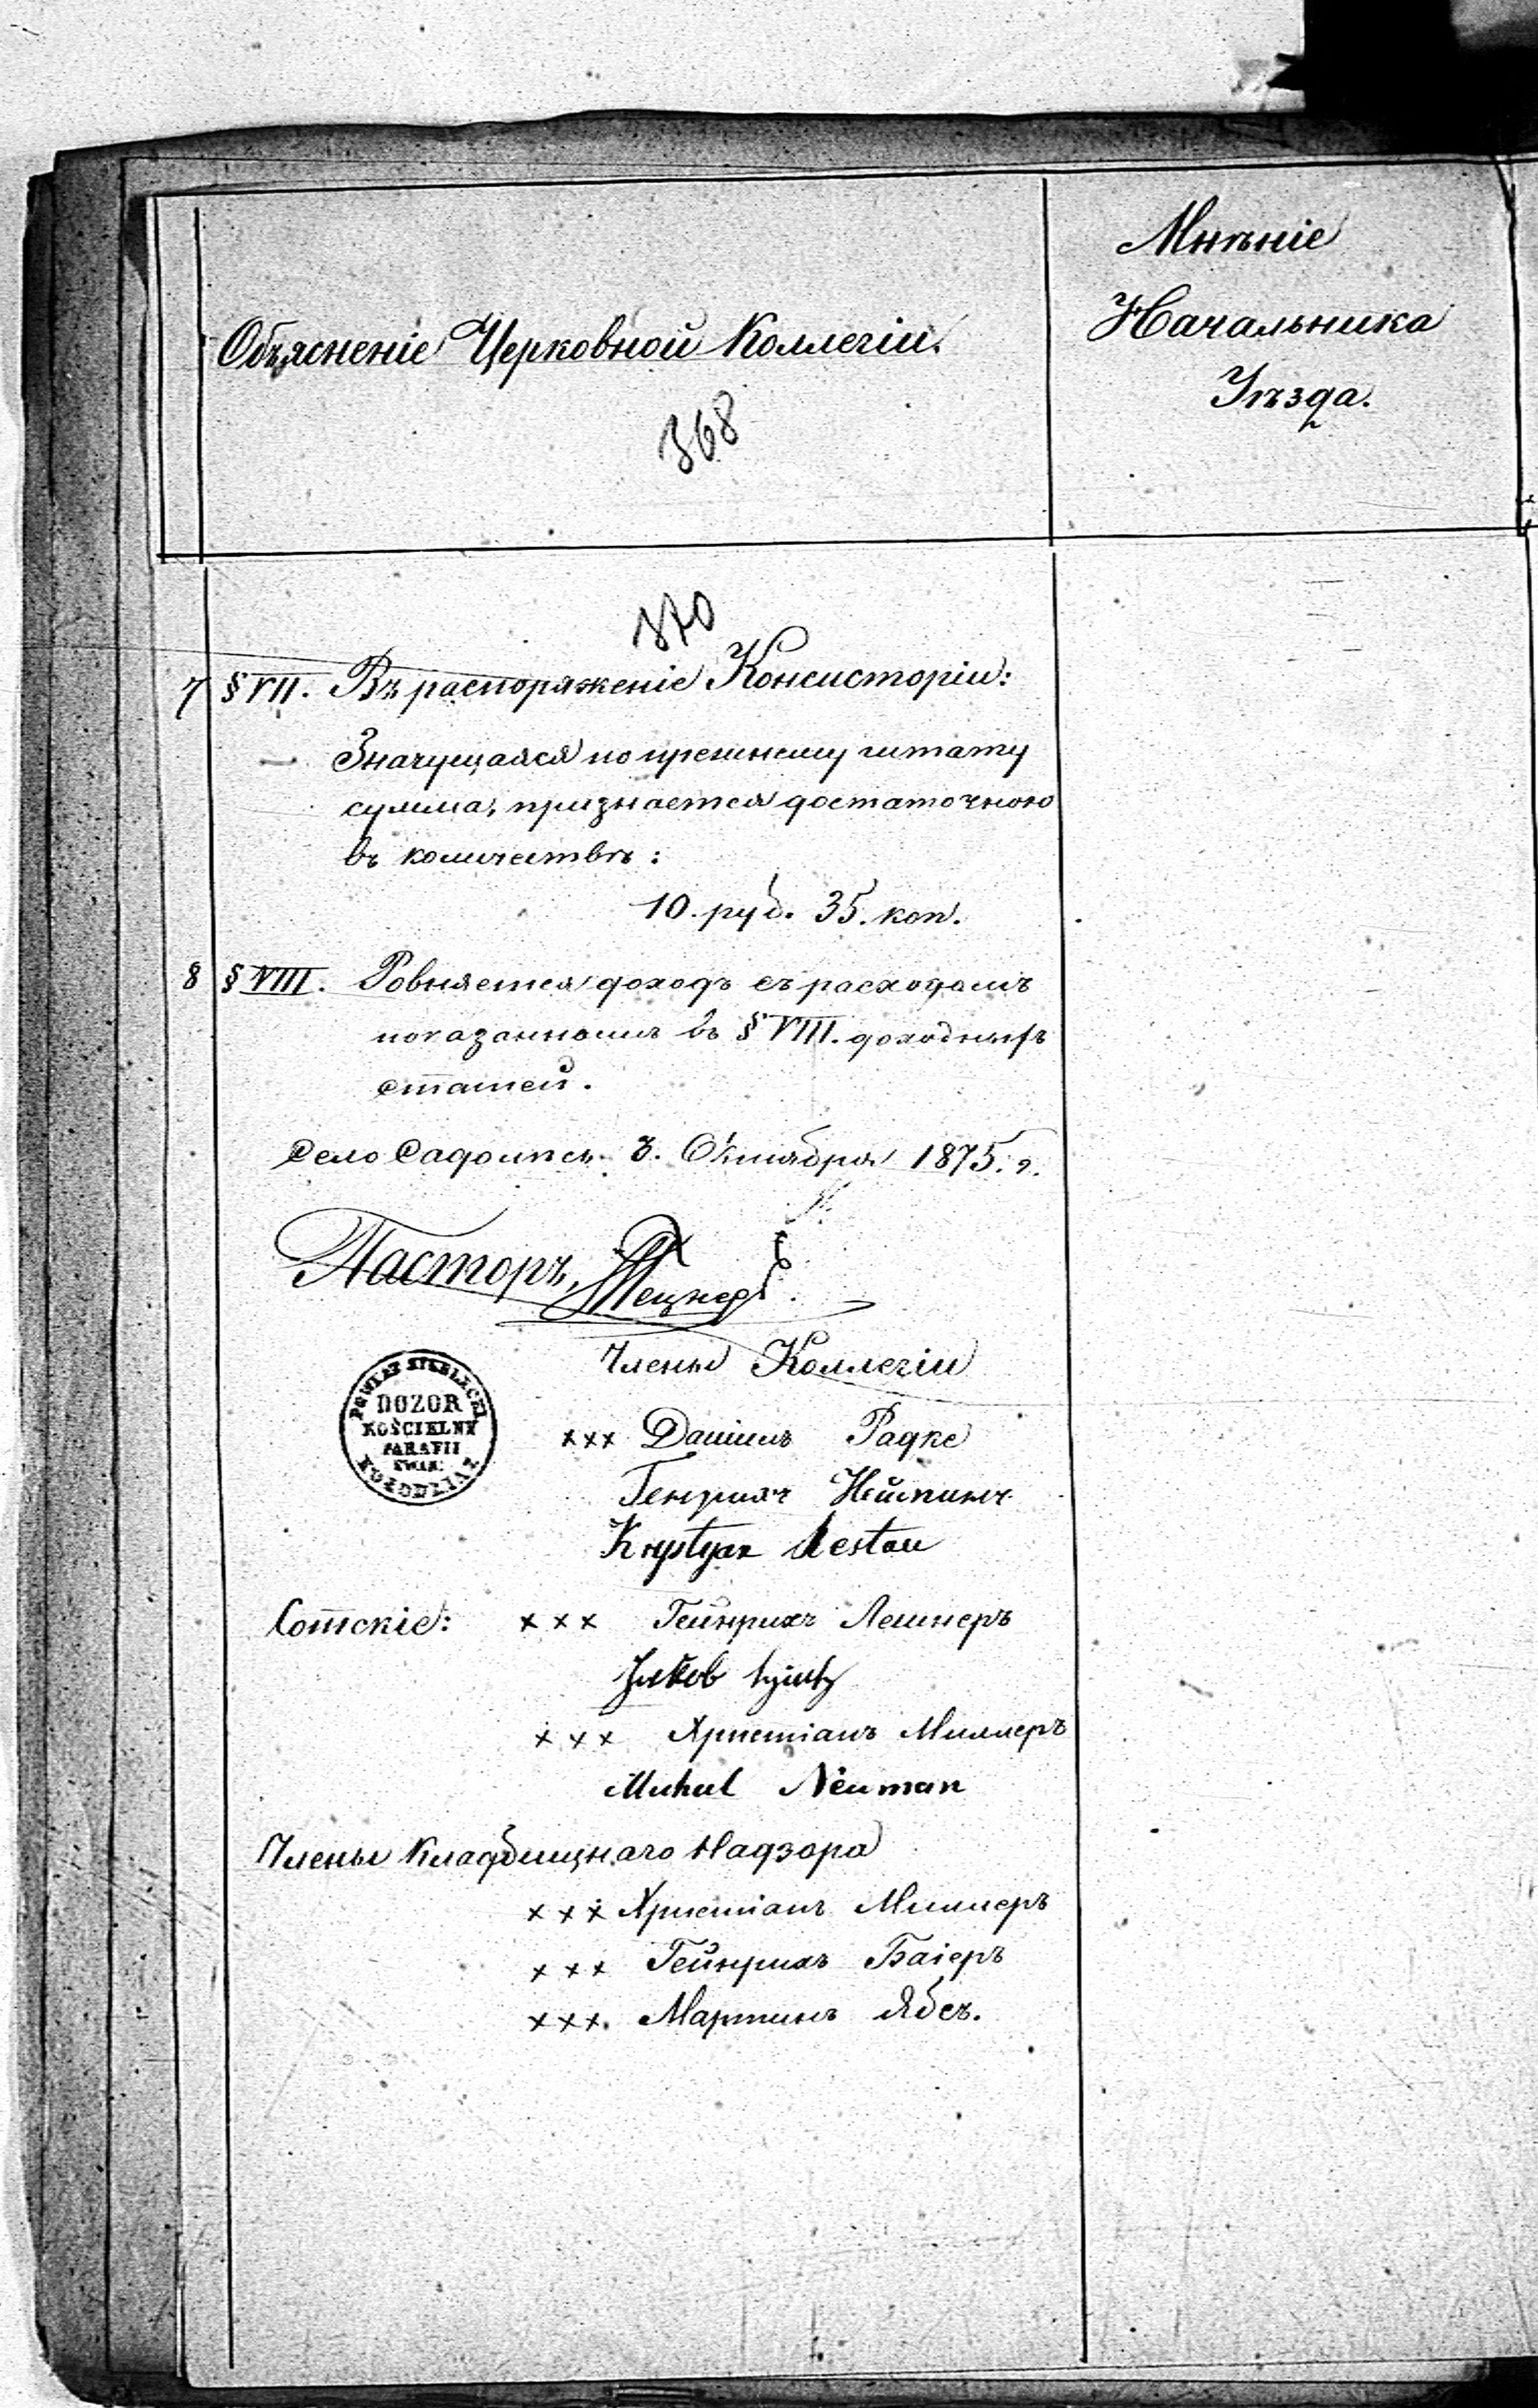 Объясненіе Церковной Коллегіи.
368
Мнѣніе
Начальника
Уѣзда.
370
7 § VII. Въ распоряженіе Консисторіи:
Значущаяся по прежнему штату
сумма, признается достаточною
въ количествѣ:
10. руб. 35. коп.
8 § VIII. Ровняется доходъ съ расходомъ
показаннымъ въ § VIII. доходныхъ
статей.
Село Садолесь 3. Октября 1875. г.
Пасторъ,
Члены Коллегіи
POWIAT SIEDLECKI
DOZOR
KOŚCIELNY
PARAFII
EWAN:
xxx Даніилъ Радке
Генрихъ
Krystyan
Сотскіе: xxx Гейнрихъ Лешнеръ
Jakob
xxx Христіанъ Миллеръ
Michal Neuman
Члены Кладбищнаго Надзора
xxx Христіанъ Миллеръ
xxx Гейнрихъ Баіеръ
xxx. Мартинъ Ябсъ.